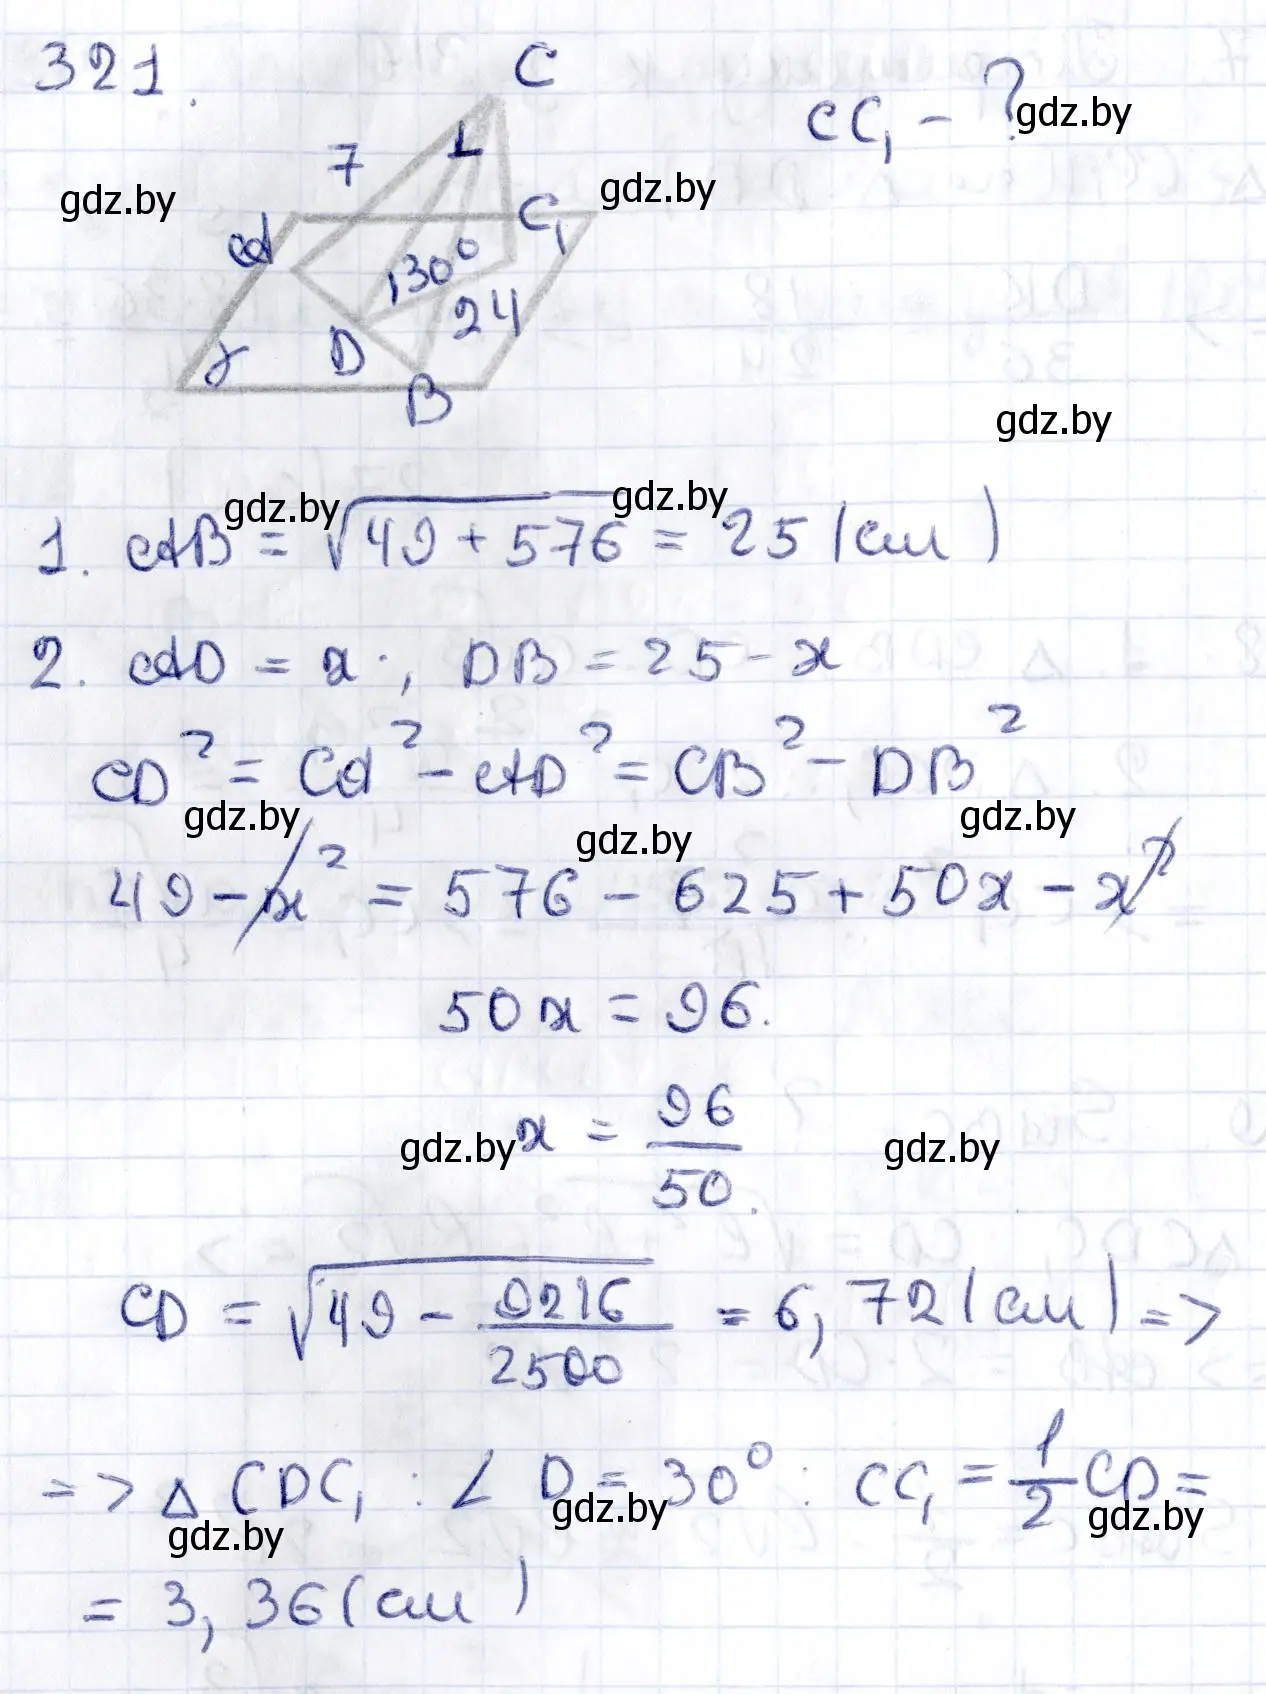 321.
C
CC₁ - ?
gdz.by
7
gdz.by
gdz.by
A
C₁
130°
24
D
B
gdz.by
gdz.by
gdz.by
1. AB = √49 + 576 = 25 (см)
2. AD = x ; DB = 25 - x
CD² = CA² - AD² = CB² - DB²
gdz.by
gdz.by
gdz.by
49 - x² = 576 - 625 + 50x - x²
50x = 96.
x = 96/50.
gdz.by
gdz.by
CD = √49 - 9216/2500 = 6,72 (см) =>
=> △ CDC₁ : ∠ D = 30° : CC₁ = 1/2 CD =
gdz.by
gdz.by
gdz.by
= 3,36 (см)